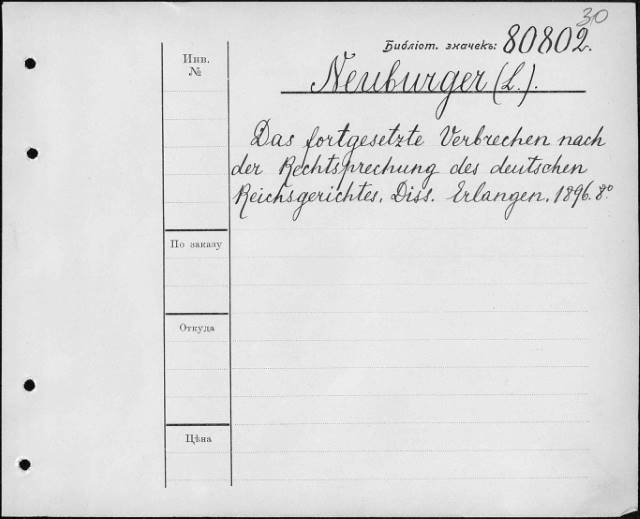 30
Библіот. значекъ: 80802.
Инв.
№
Neuburger (L.).
Das fortgesetzte Verbrechen nach
der Rechtsprechung des deutschen
Reichsgerichtes. Diss. Erlangen. 1896. 8º
По заказу
Откуда
Цѣна